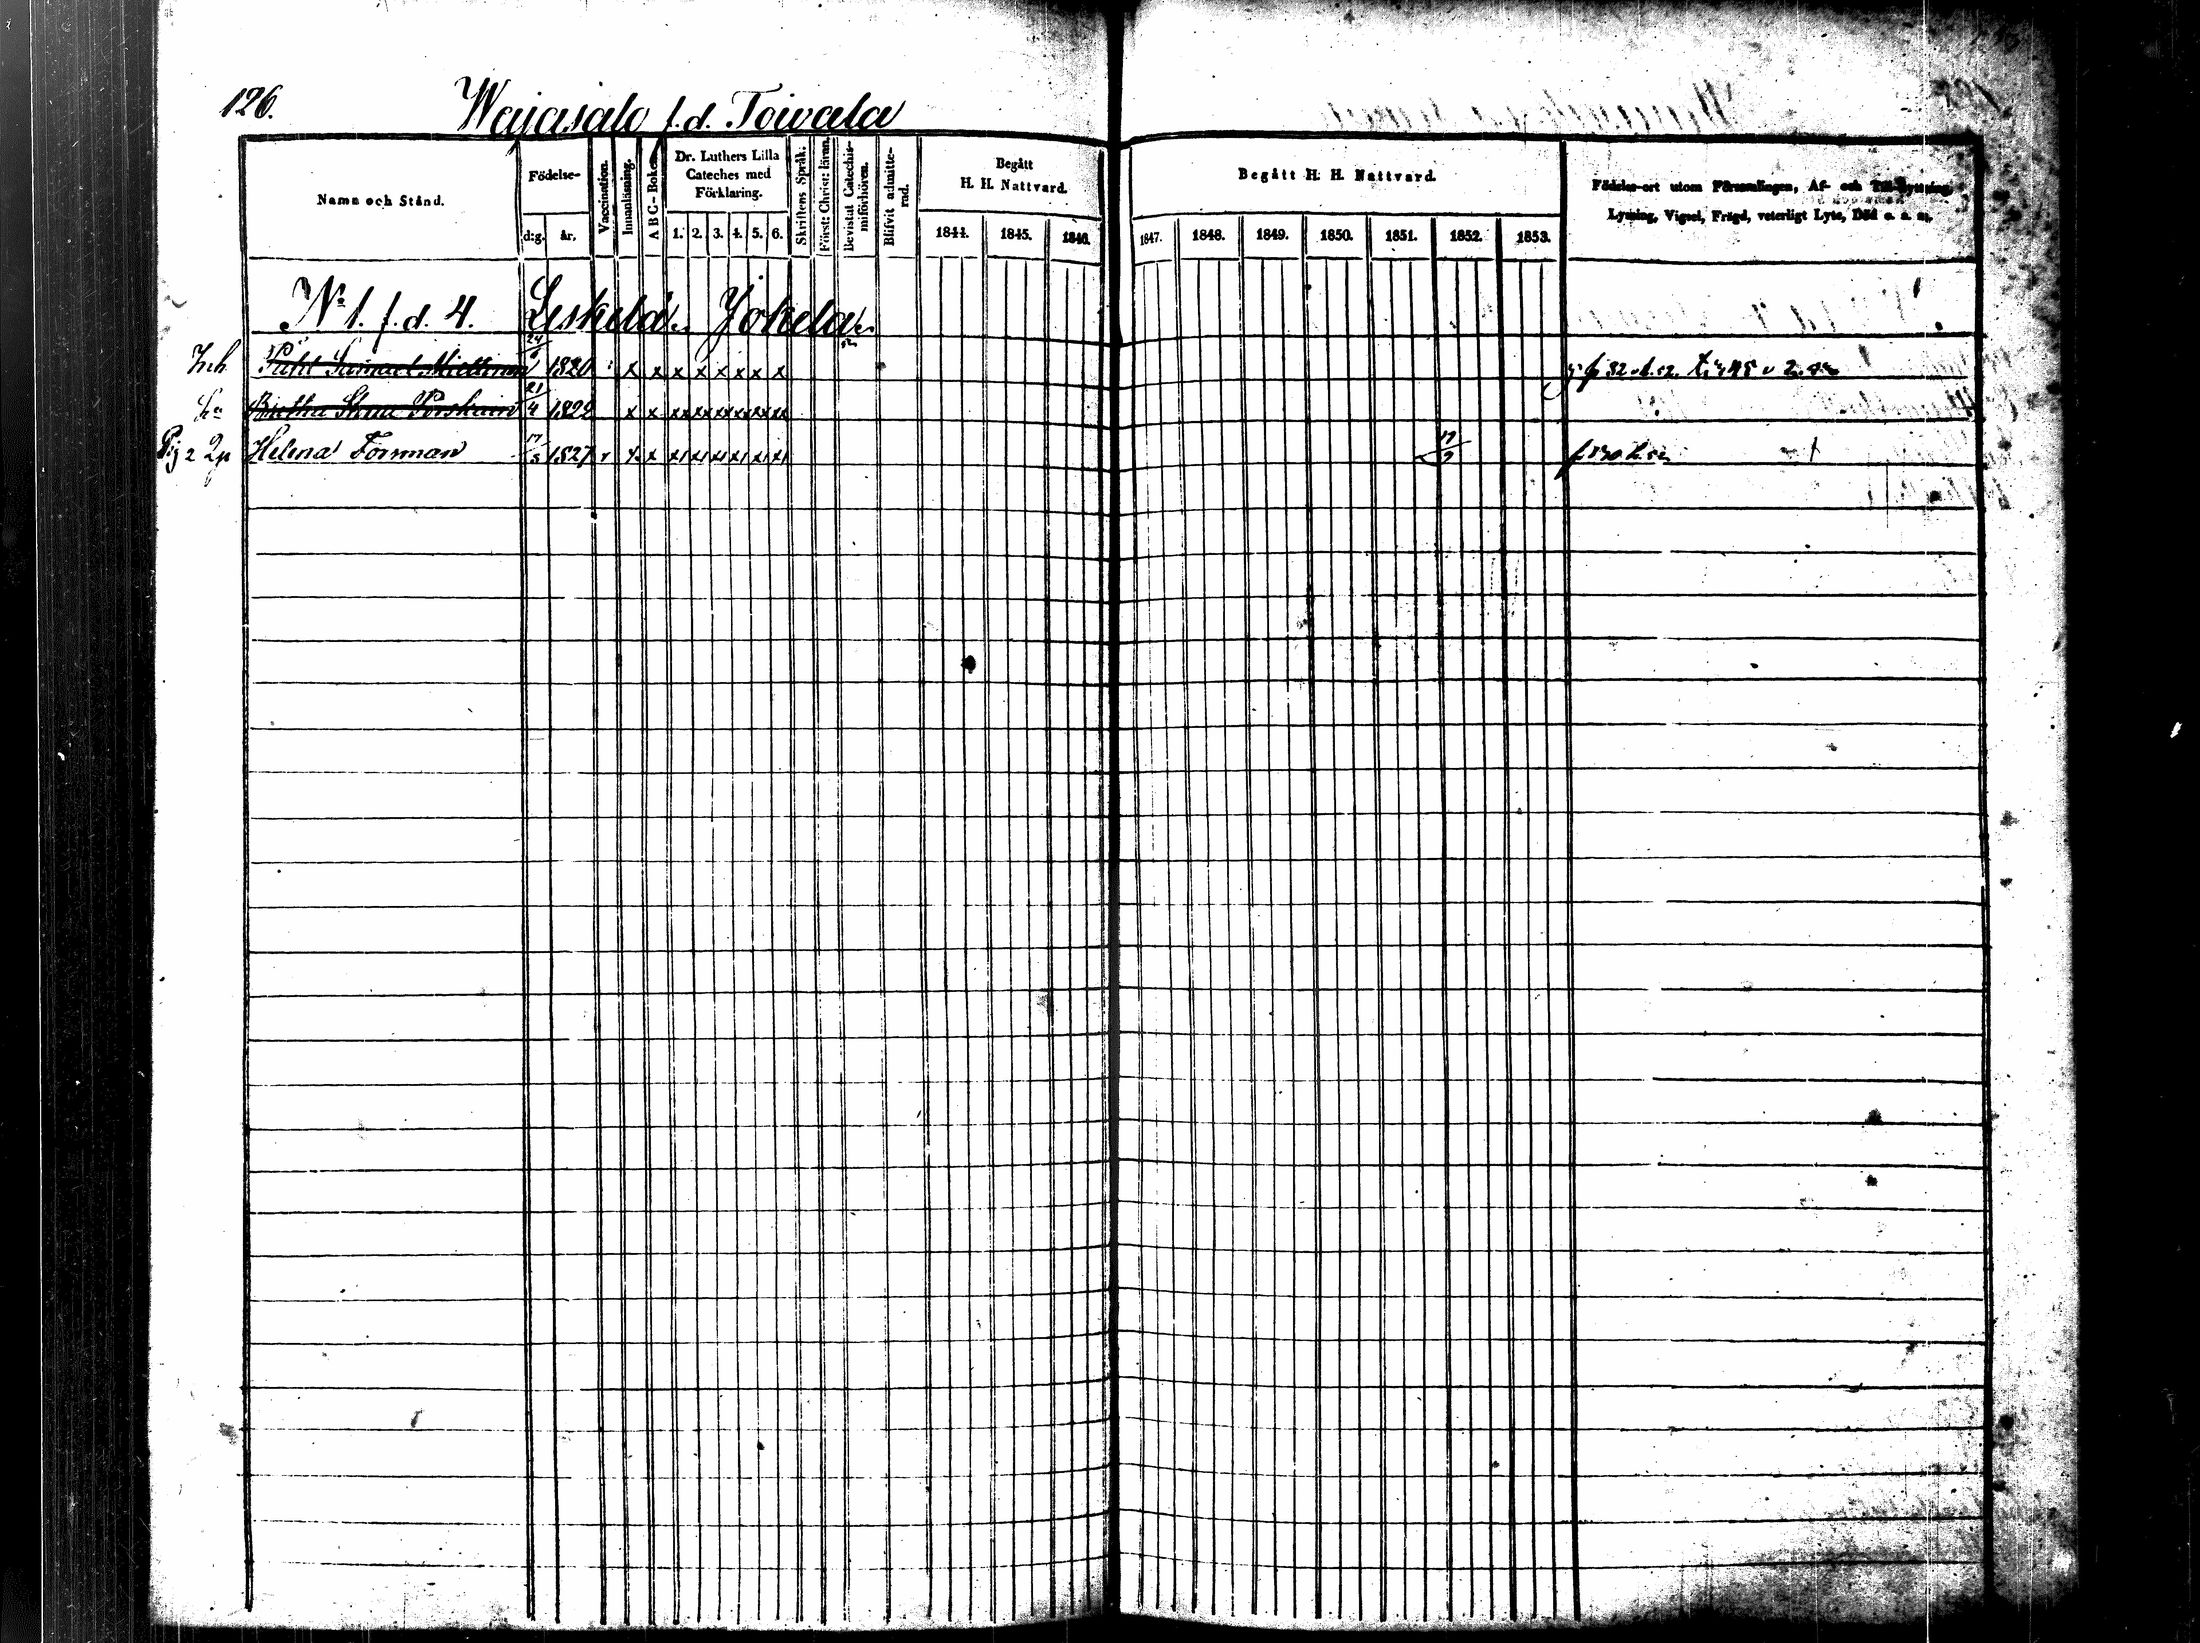 126.
Wajasalo f.d. Toivala
Namn och Stånd.
Födelse-
d:g. år.
Vaccination.
Innanläsning.
A B C-Boken
Dr. Luthers Lilla
Cateches med
Förklaring.
1. 2. 3. 4. 5. 6.
Skriftens Språk.
Först: Christ: läran.
Bevistat Catechis-
miförhören.
Blifvit admitte-
rad.
Begått
H. H. Nattvard.
1844. 1845. 1846.
Begått H. H. Nattvard.
1847. 1848. 1849. 1850. 1851. 1852. 1853.
Födelse-ort utom Församlingen, Af- och Till-flyttning,
Lysning, Vigsel, Frägd, veterligt Lyte, Död o. s. m.
No 1. f.d. 4. Leskelä Jokela
Inh Påhl Samuel Miettinen 24/6 1820 x x x x x x x x
Hu Brietha Stina 21/4 1822 x x xx xx xx xx xx xx
Pig Helena Forsman 17/3 1827 17/9